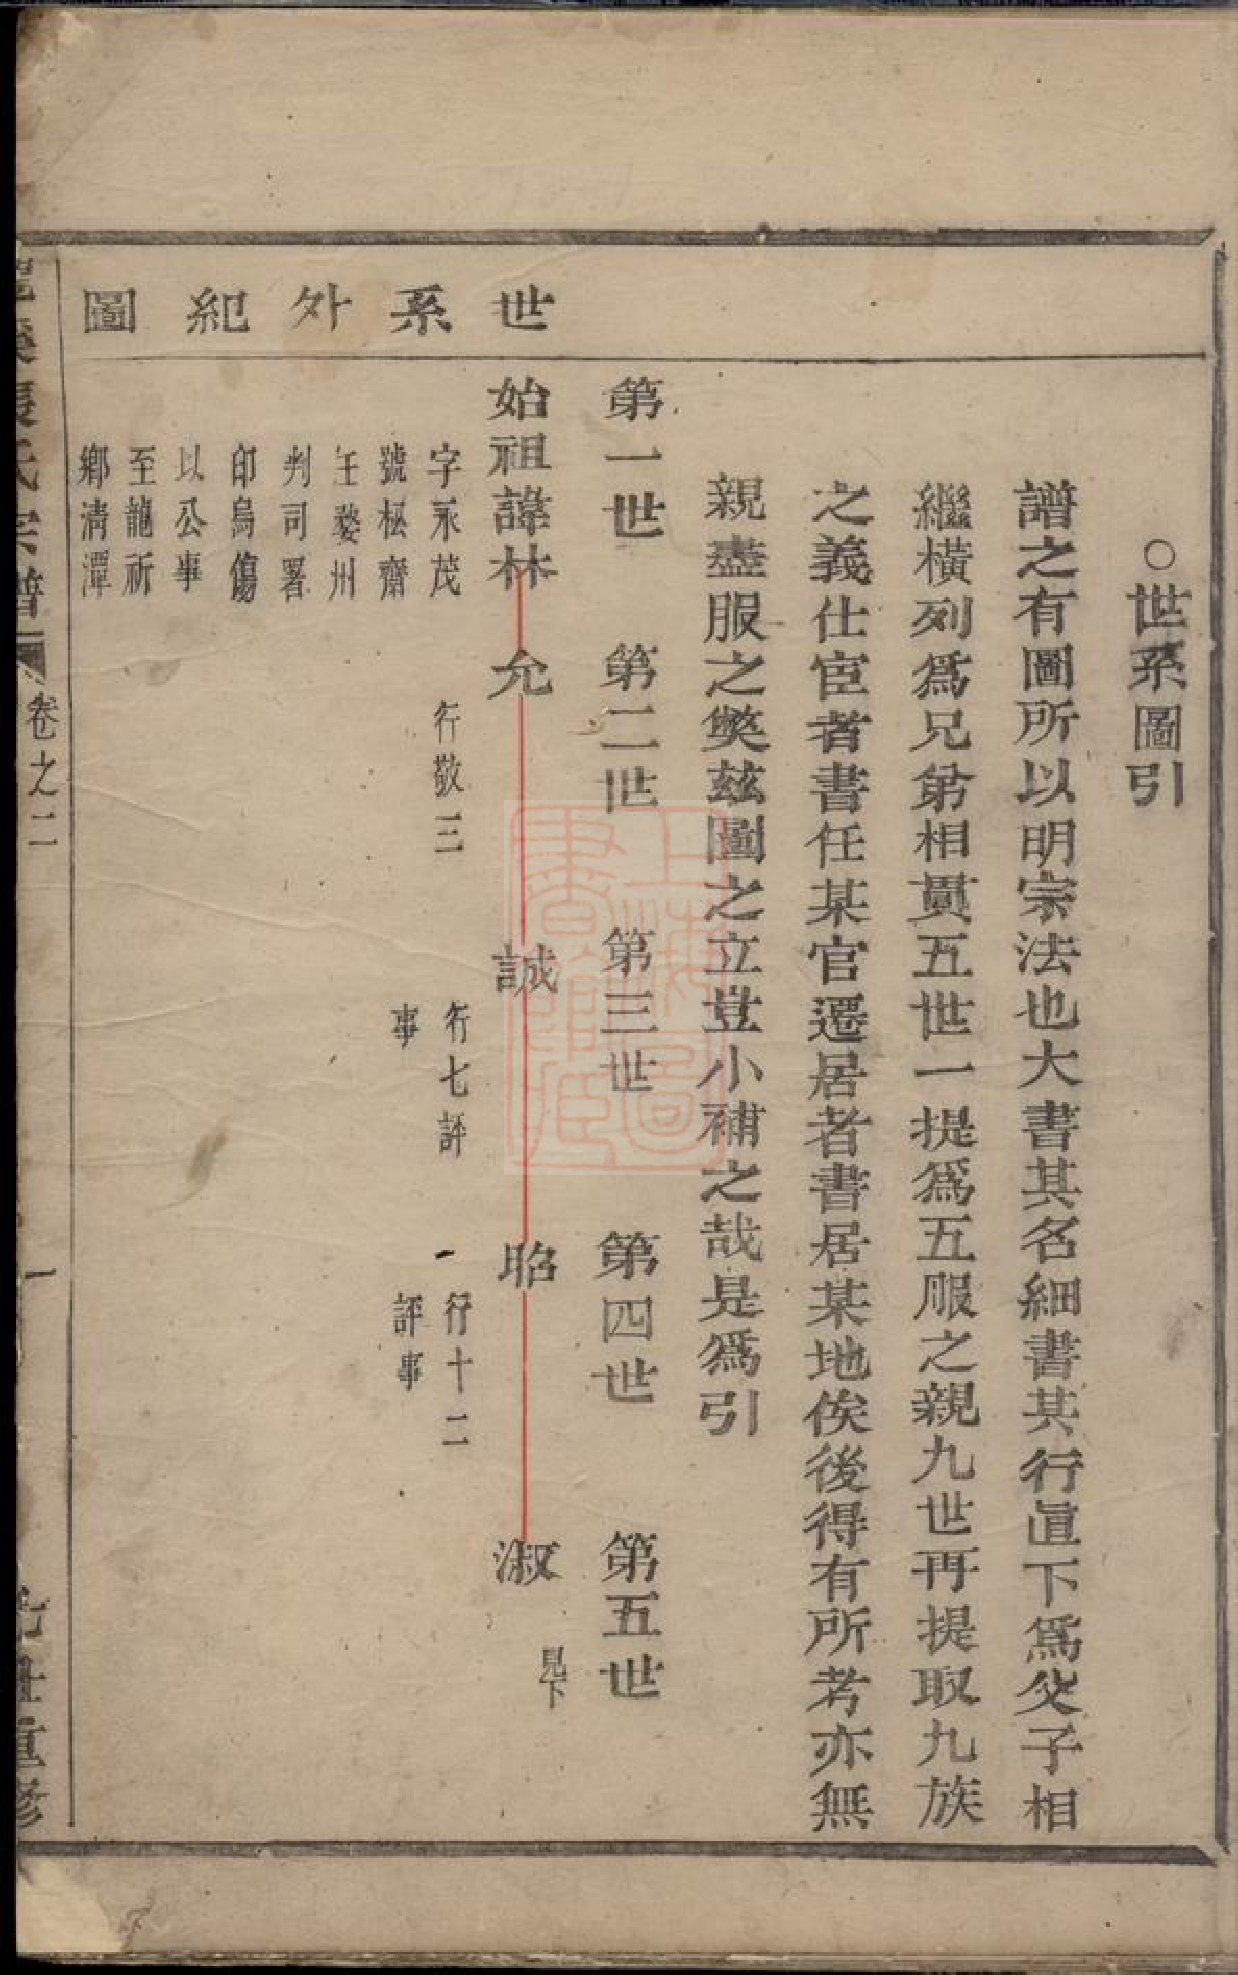 ○世系圖引
譜之有圖所以明宗法也大書其名細書其行直下爲父子相
繼橫列爲兄弟相貫五世一提爲五服之親九世再提取九族
之義仕宦者書任某官遷居者書居某地俟後得有所考亦無
親盡服之奬兹圖之立豈小補之哉是爲引
世系外紀圖
第一世 第二世 第三世 第四世 第五世
始祖諱林 允 誠 昭 淑
見下
字永茂
號極齋
任婺州
判司署
邱烏傷
以公事
至龍祈
鄉清潭
行敬三
行七評
事
行十二
評事
張氏宗譜 卷之二
一
重修
上海圖書館藏